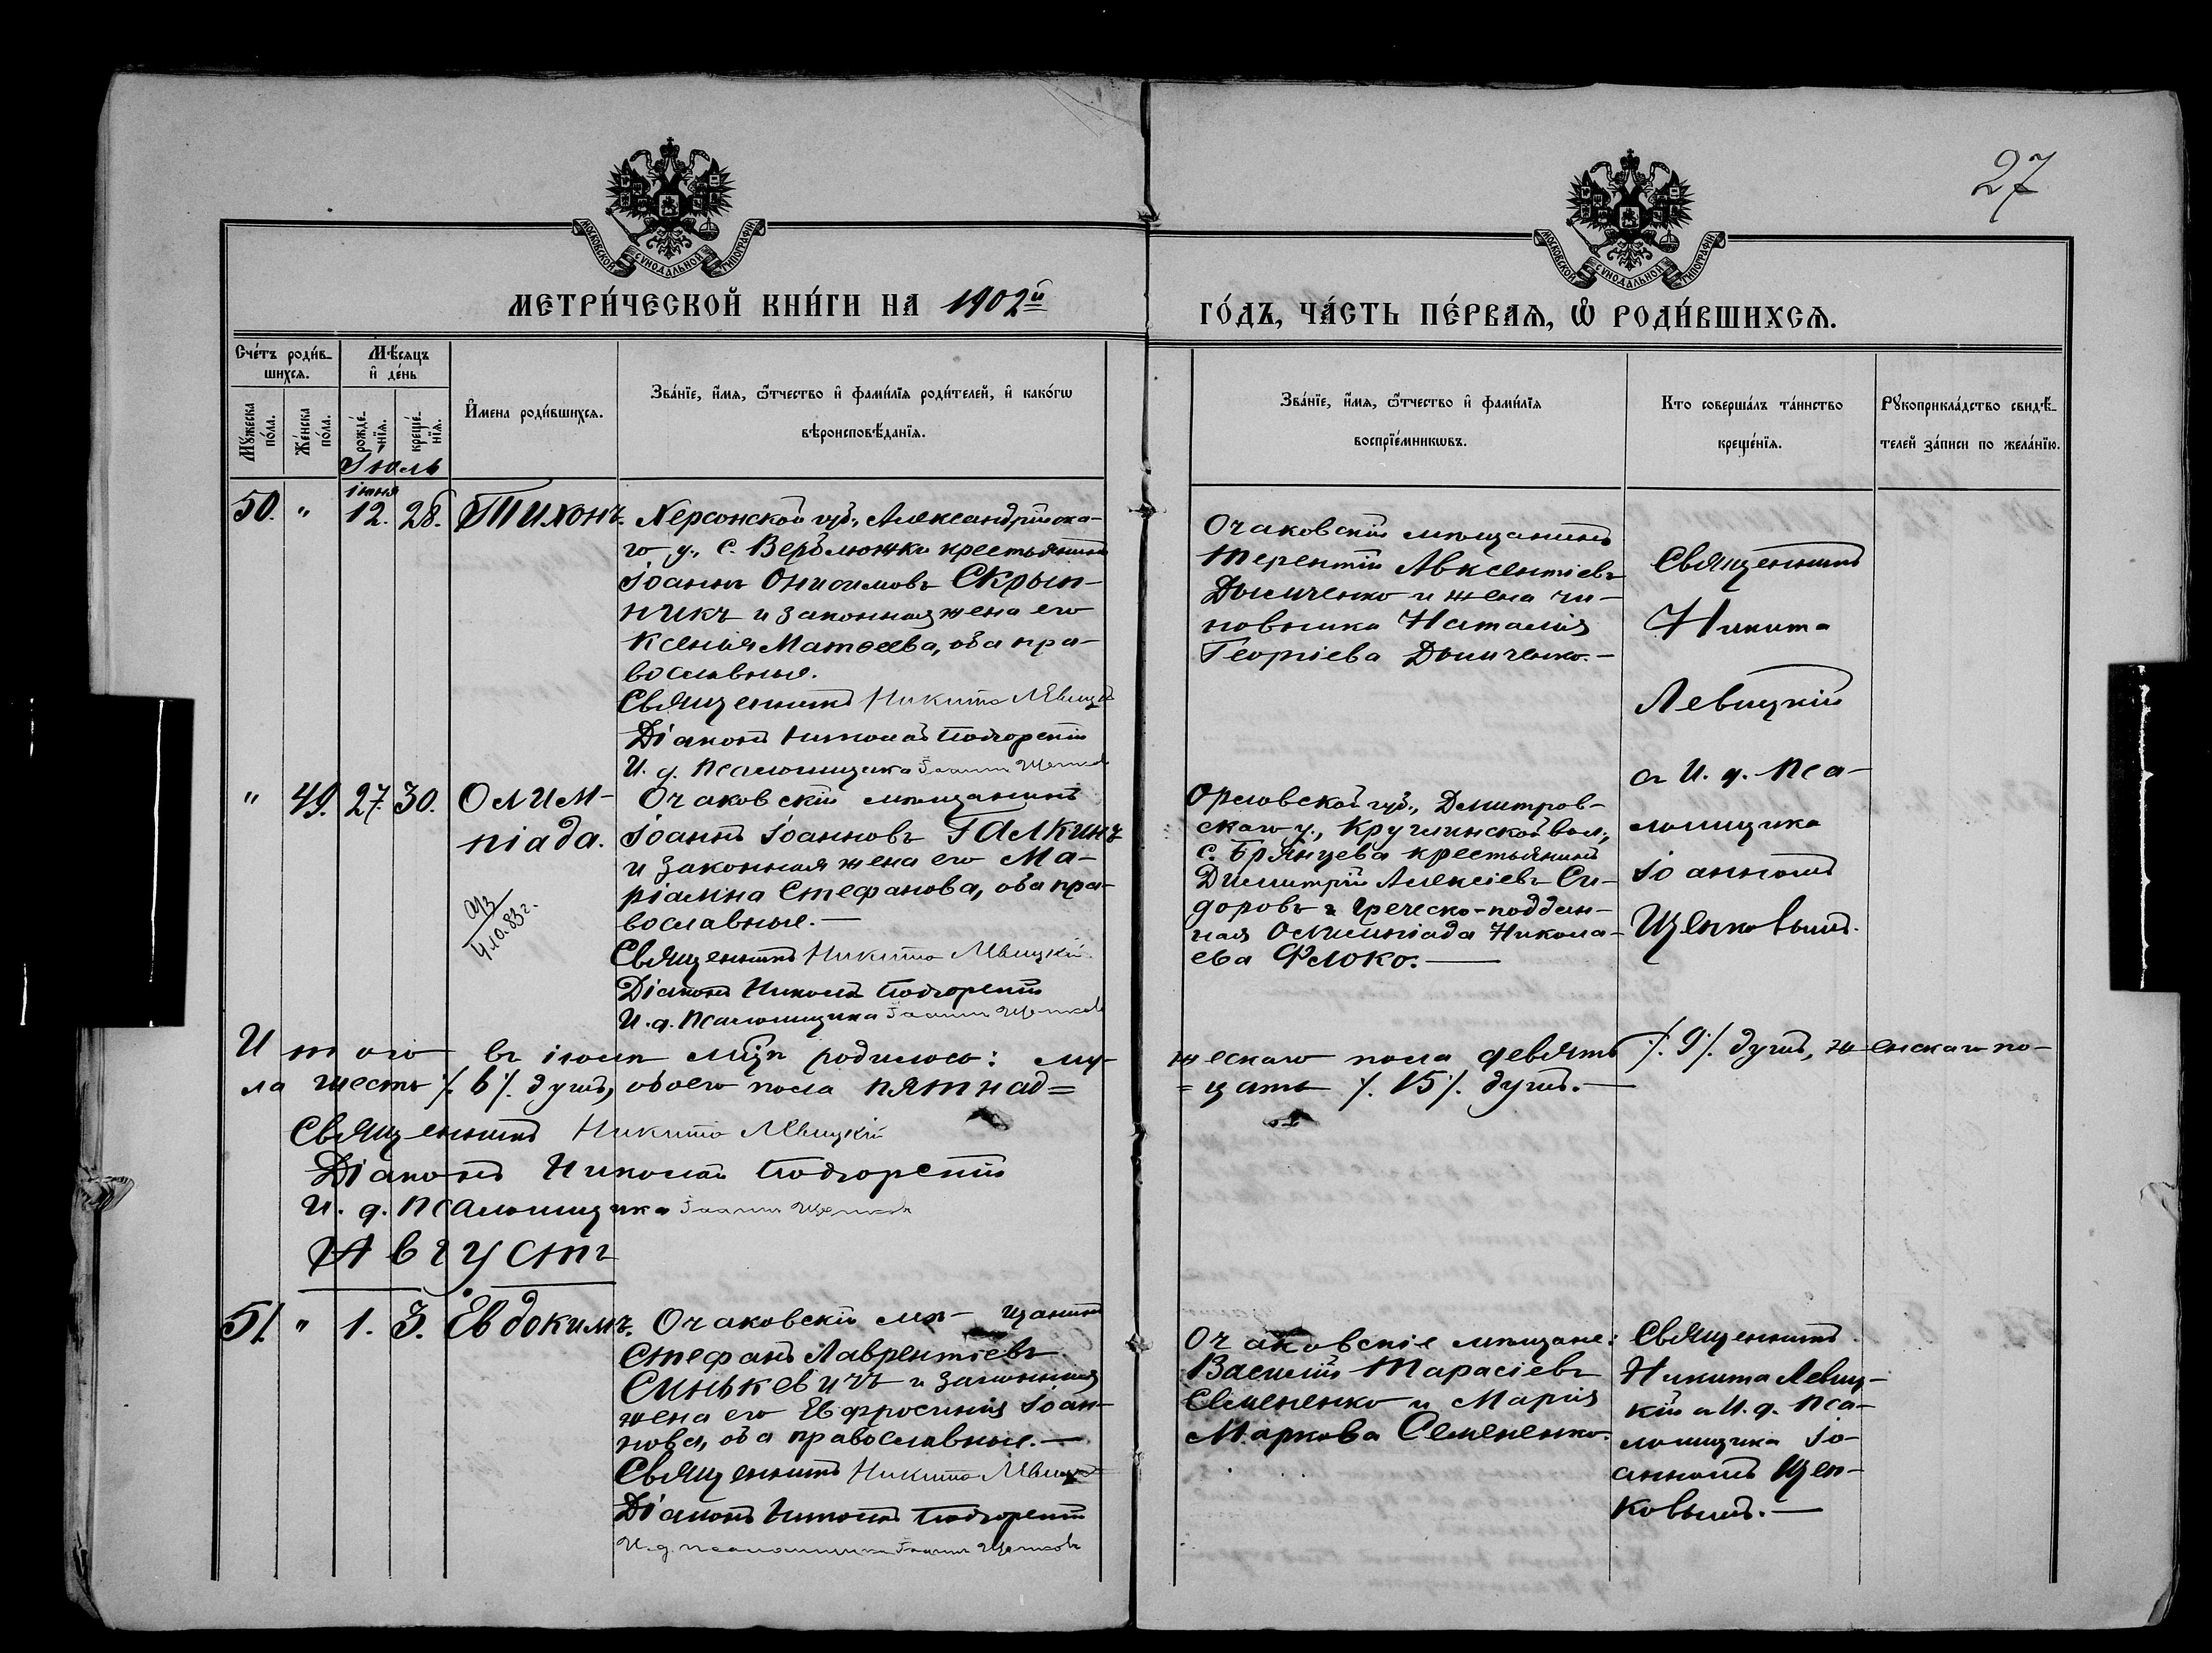 27
МОСКОВСКОЙ СѴНОДАЛЬНОЙ ТИПОГРАФІИ
МОСКОВСКОЙ СѴНОДАЛЬНОЙ ТИПОГРАФІИ
МЕТРИ́ЧЕСКОЙ КНИ́ГИ НА 1902й
ГО́ДЪ, ЧА́СТЬ ПЕ́РВАѦ, Ѿ РОДИ́ВШИХСѦ.
Сче́тъ роди́в-
шихсѧ.
Мꙋжеска
по́ла.
Же́нска
по́ла.
Мѣ́сяцъ
и҆ де́нь
рожде́-
нїѧ.
креще́-
нїѧ.
И҆мена роди́вшихсѧ.
Зва́нїе, и҆́мѧ, ѻ҆́тчество и҆ фами́лїѧ роди́телей, и҆ како́гѡ
вѣроисповѣ́данїѧ.
Зва́нїе, и҆́мѧ, ѻ҆́тчество и҆ фами́лїѧ
воспрїе́мникѡвъ.
Кто соверша́лъ та́инство
креще́нїѧ.
Рꙋкоприкла́дство свидѣ́-
телей за́писи по жела́нїю.
Іюль
іюня
50. " 12. 28. Тихонъ.
Херсонской губ., Александрійска-
го у., с. Верблюжки крестьянинъ
Іоаннъ Онисимовъ Скрып-
никъ и законная жена его
Ксенія Матѳеева, оба пра-
вославные.
Священникъ Никита Левицкій
Діаконъ Николай Подгорскій
И. д. псаломщика Іоаннъ Щепковъ
Очаковскій мѣщанинъ
Терентій Авксентіевъ
Дымченко и жена чи-
новника Наталія
Георгіева Дымченко.-
Священникъ
Никита
Левицкій
съ И. д. Пса-
ломщика
Іоанномъ
Щепковымъ.
" 49. 27. 30. Олим-
піада.
4.10.83г.
Очаковскій мѣщанинъ
Іоаннъ Іоанновъ Галкинъ
и законная жена его Ма-
ріамна Стефанова, оба пра-
вославные.-
Священникъ Никита Левицкій
Діаконъ Николай Подгорскій
И. д. псаломщика Іоаннъ Щепковъ
Орловской губ., Дмитров-
скаго у., Круглинской вол.,
с. Брянцева крестьянинъ
Димитрій Алексіевъ Си-
доровъ и греческо-поддан-
ная Олимпіада Никола-
ева Флоко.-
Итого въ іюлѣ мѣсяцѣ родилось: му-
жескаго пола девять /. 9 /. душъ, женскаго по-
ла шесть /. 6 /. душъ, обоего пола пятнад=
=цать /. 15 /. душъ.-
Священникъ Никита Левицкій
Діаконъ Николай Подгорскій
И. д. псаломщика Іоаннъ Щепковъ
Августъ
51. " 1. 3. Евдокимъ.
Очаковскій мѣ- щанинъ
Стефанъ Лаврентіевъ
Синькевичъ и законная
жена его Евфросинія Іоан-
нова, оба православные.-
Священникъ Никита Левицкій
Діаконъ Николай Подгорскій
И. д. псаломщика Іоаннъ Щепковъ
Очаковскіе мѣщане:
Василій Тарасіевъ
Семененко и Марія
Маркова Семененко.
Священникъ
Никита Левиц-
кій съ И. д. Пса-
ломщика Іо-
анномъ Щеп-
ковымъ.-